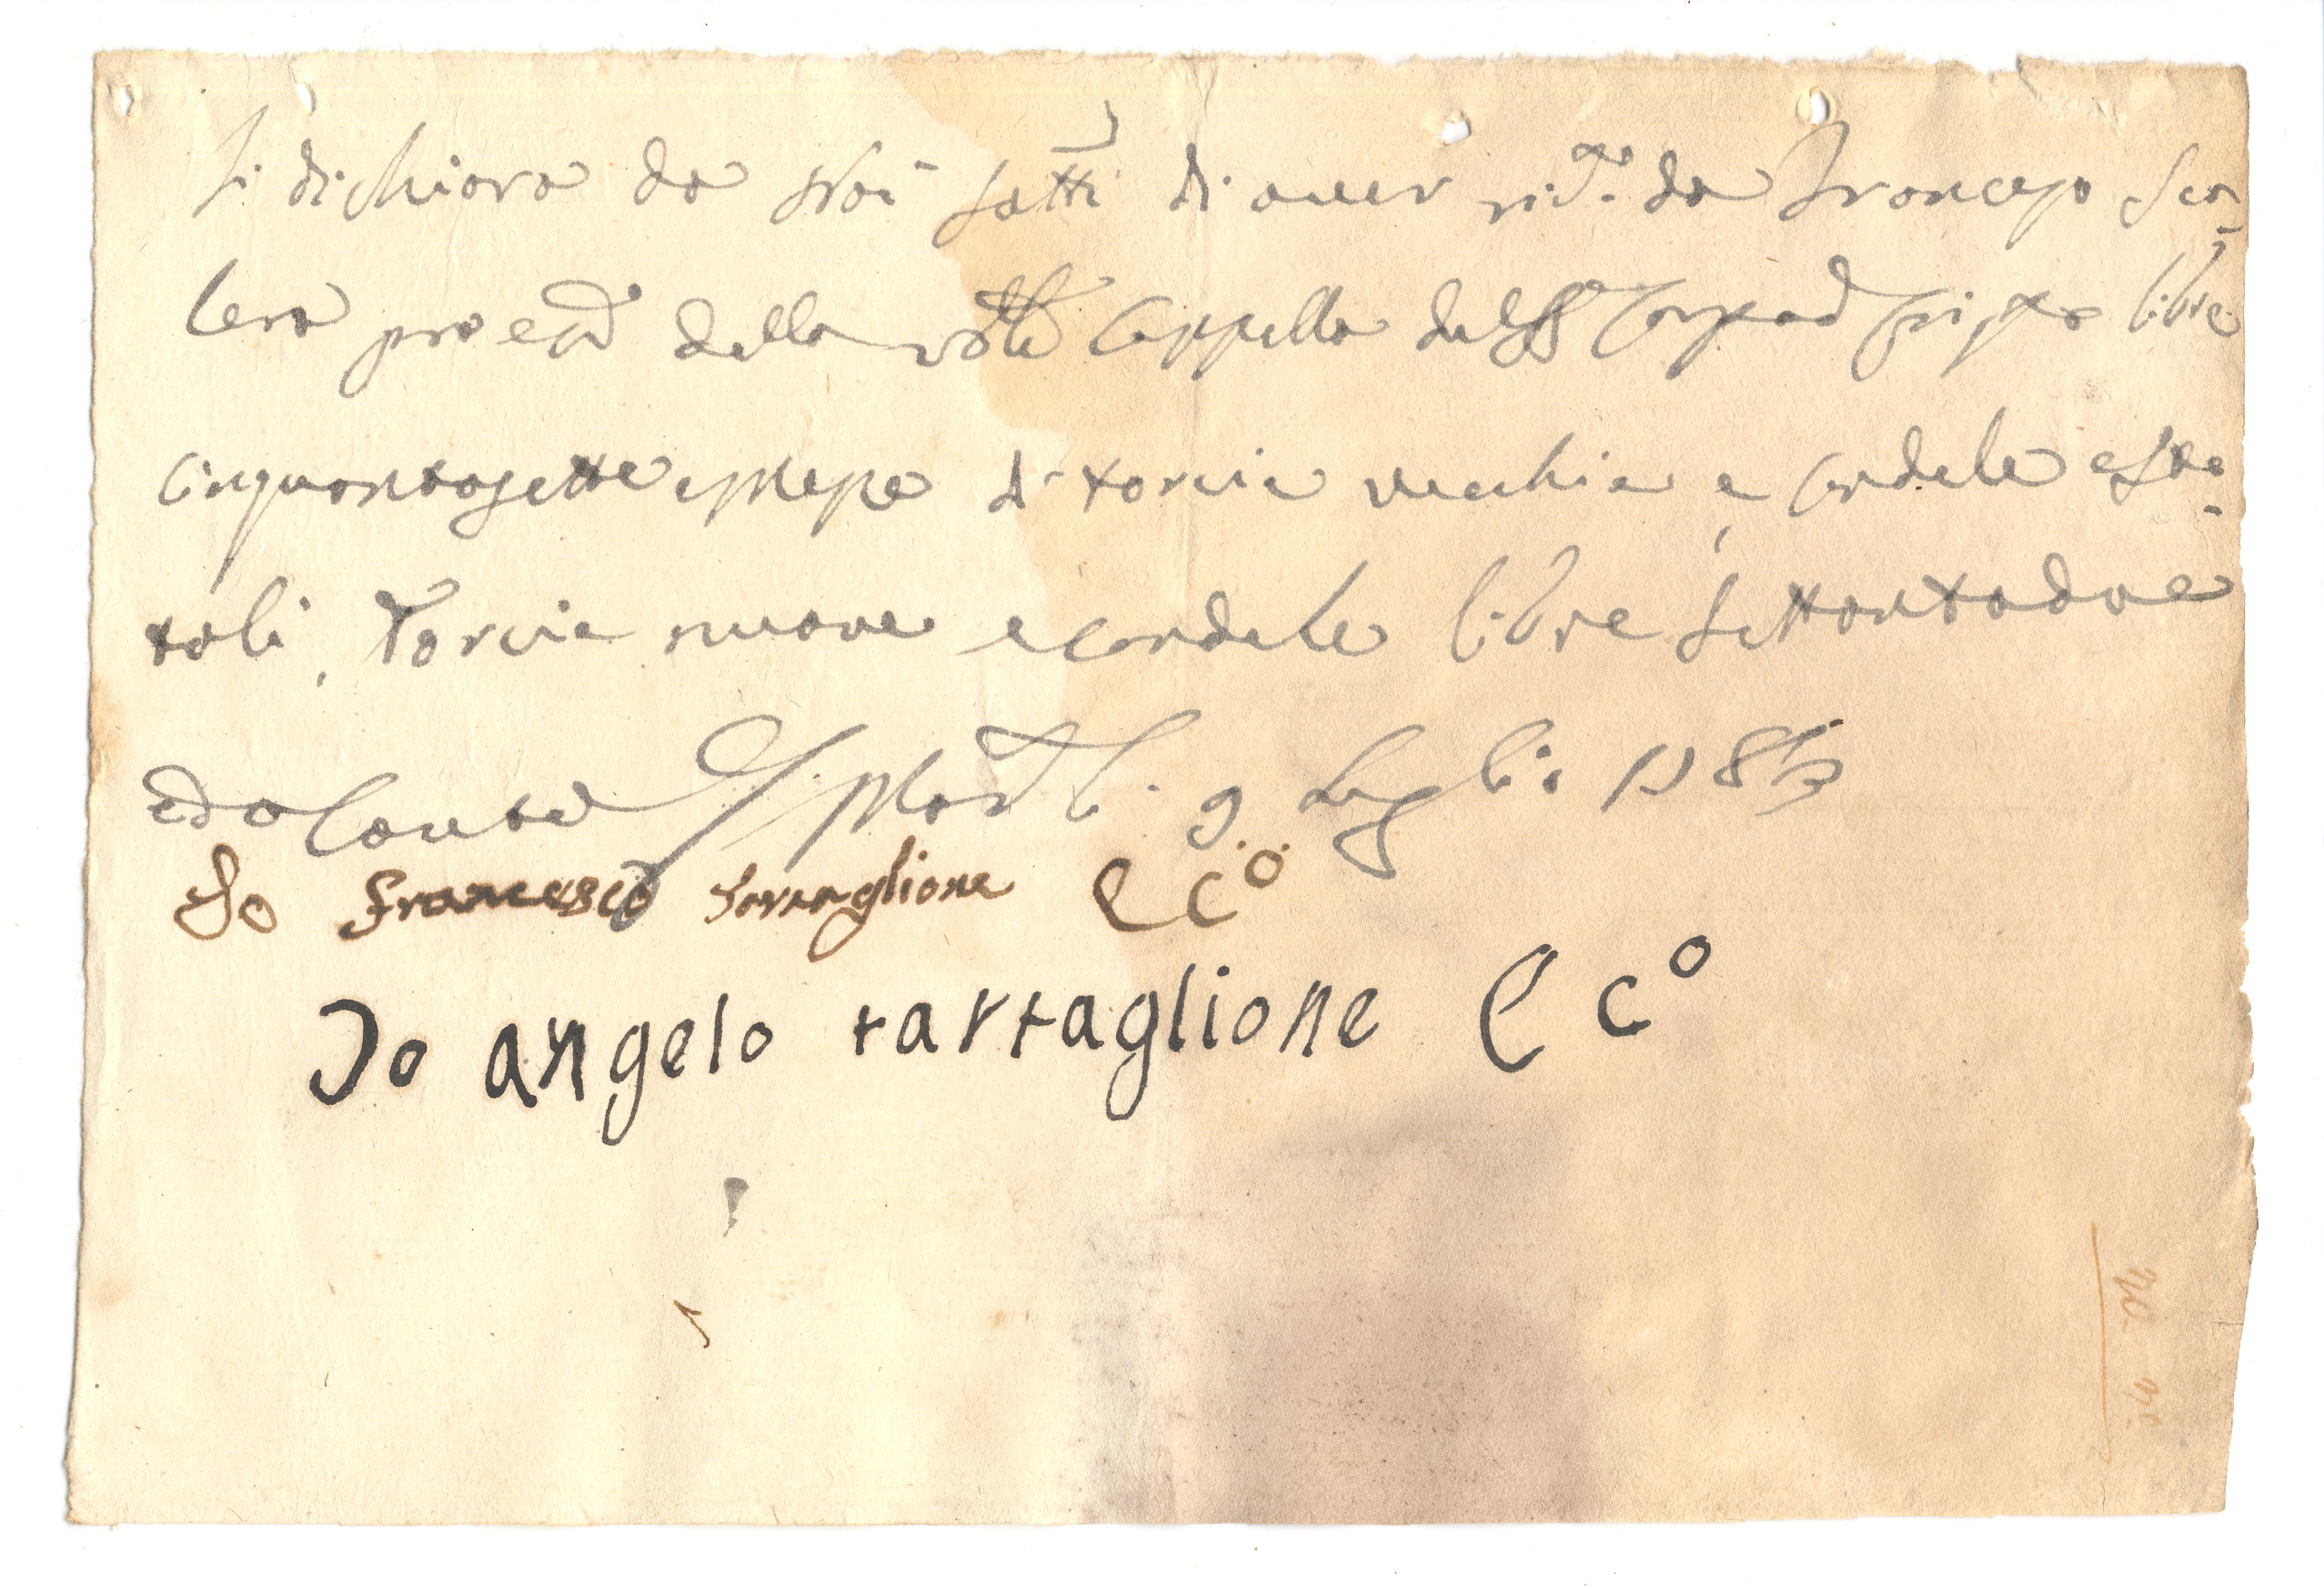 Si dichiara da Noi sotti di auer rice.to da Francesco Sca
lera pro ecd della Ven.le Cappella del SS. Corpo di Cristo libre
cinquantasette e Meza di torcie vecchie e candele e Sto
toli, Torcie nuove e candele libre Settantadue
9 Luglio
Io francesco tartaglione E C°
Io angelo tartaglione E C°